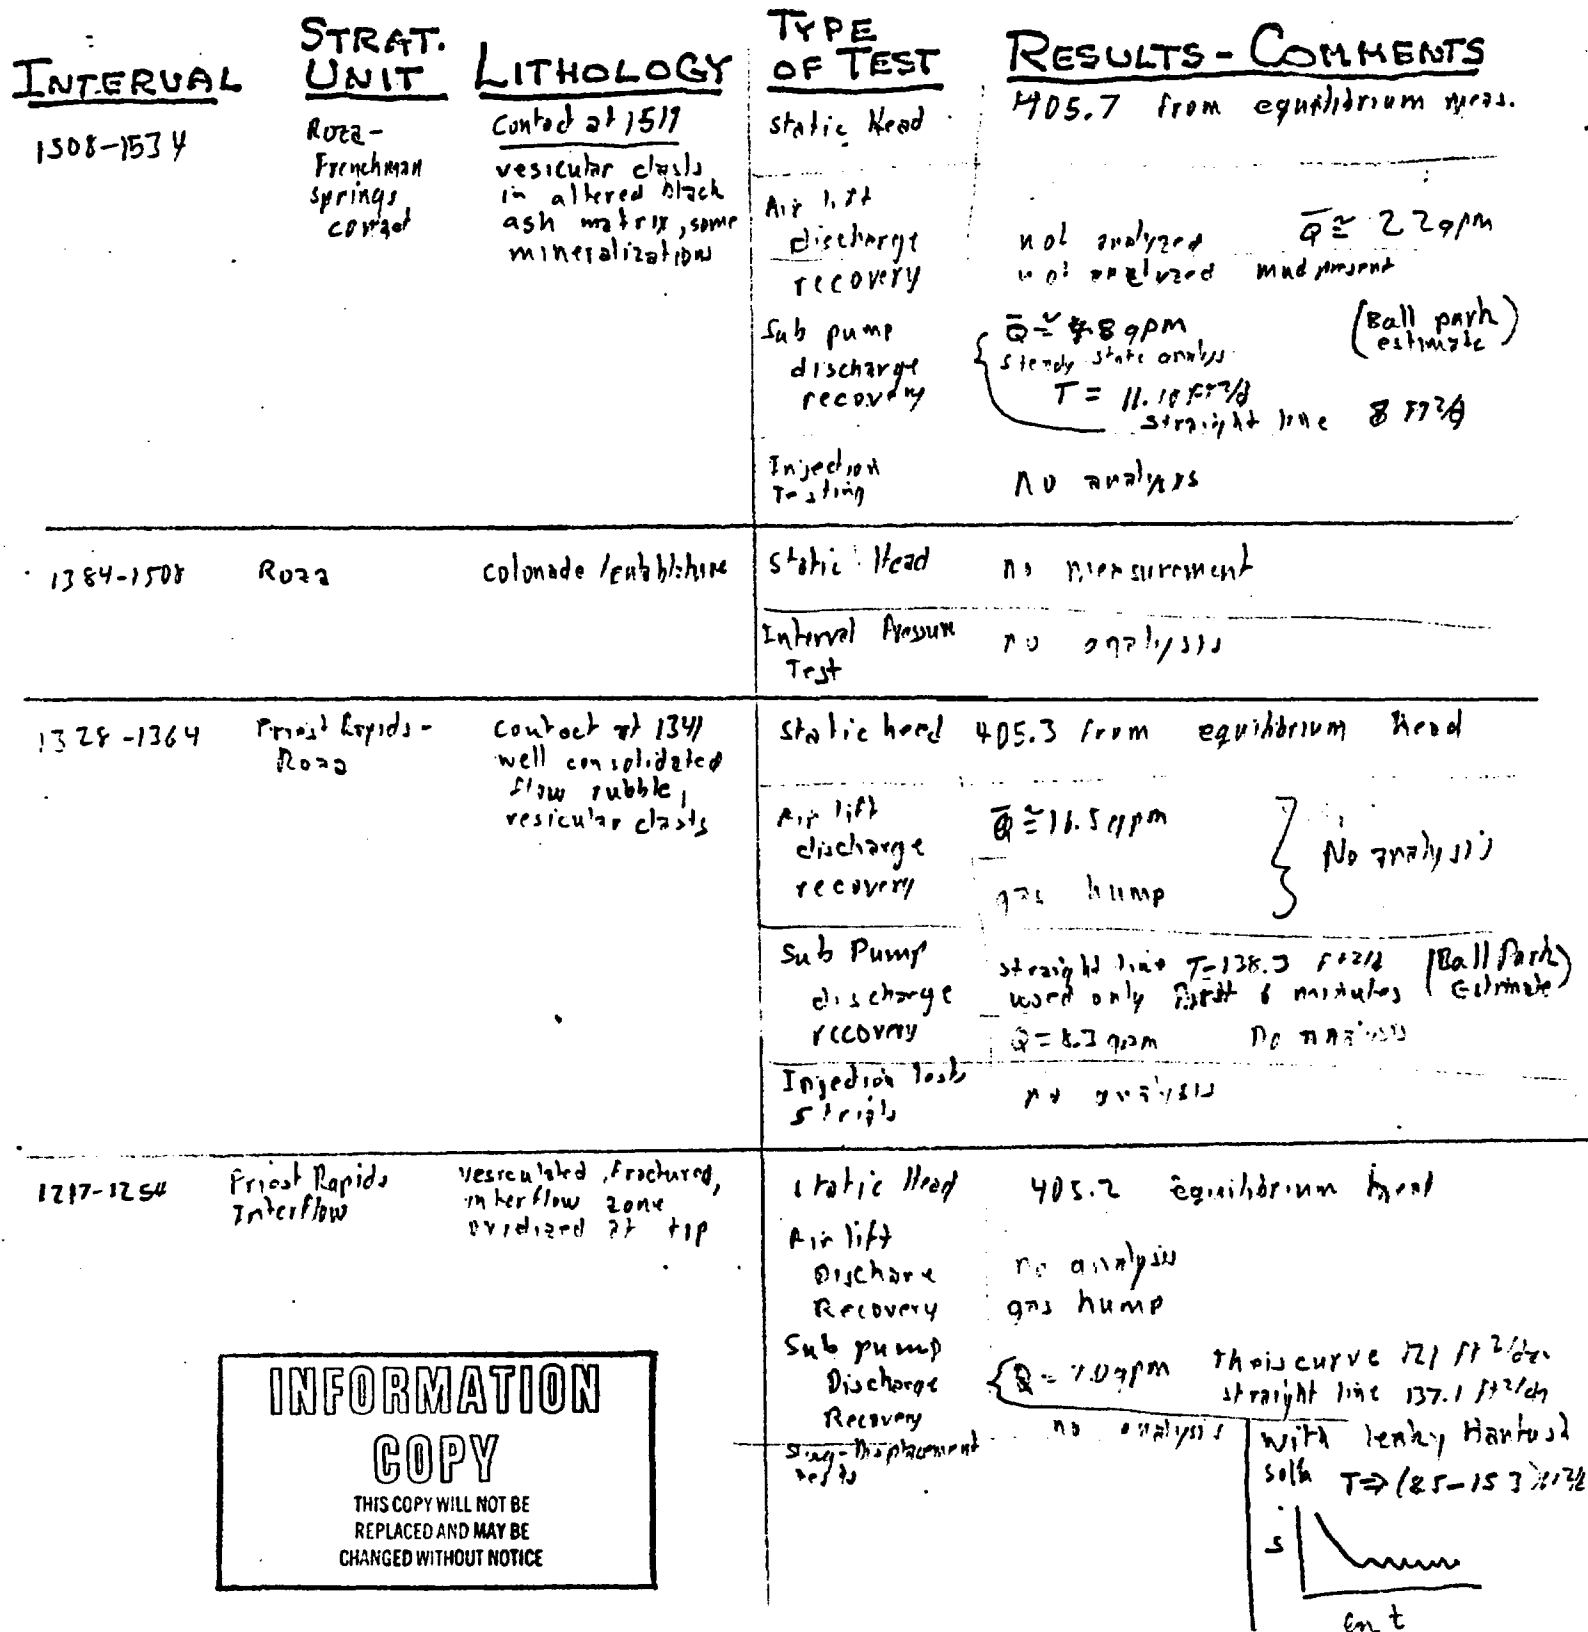 INTERVAL
STRAT. UNIT
LITHOLOGY
TYPE OF TEST
RESULTS - COMMENTS
1508-1534
Roza -
Frenchman
Springs
contact
Contact at 1519
vesicular clasts
in altered black
ash matrix, some
mineralization
Static Head
405.7 from equilibrium meas.
Air lift
discharge
not analyzed Q̄ ≅ 22 gpm
recovery
not analyzed mud present
Sub pump
discharge
recovery
Q̄ ≅ 8 gpm
(Ball park
estimate)
steady state analysis
T = 11.18 ft2/d
straight line 8 ft2/d
Injection
Testing
no analysis
1384-1508
Roza
colonade /
Static Head
no measurement
Interval Pressure
Test
no analysis
1328-1364
Priest Rapids -
Roza
contact at 1341
well consolidated
flow rubble,
vesicular clasts
Static head
405.3 from equilibrium head
Air lift
discharge
recovery
Q̄ ≅ 16.5 gpm
gas hump
No analysis
Sub Pump
discharge
recovery
straight line T=138.3 ft2/d
used only first 6 minutes
(Ball Park
Estimate)
Q = 8.3 gpm no analysis
Injection tests
no analysis
1217-1254
Priest Rapids
Interflow
vesiculated, fractured,
interflow zone
oxidized at top
Static Head
405.2 equilibrium head
Air lift
Discharge
no analysis
Recovery
gas hump
Sub pump
Discharge
Recovery
Q = 7.0 gpm
Theis curve 121 ft2/day
straight line 137.1 ft2/day
no analysis
Slug-Displacement
tests
with leaky Hantush
soln T⇒(85-153) ft2/d
s
ln t
INFORMATION
COPY
THIS COPY WILL NOT BE
REPLACED AND MAY BE
CHANGED WITHOUT NOTICE